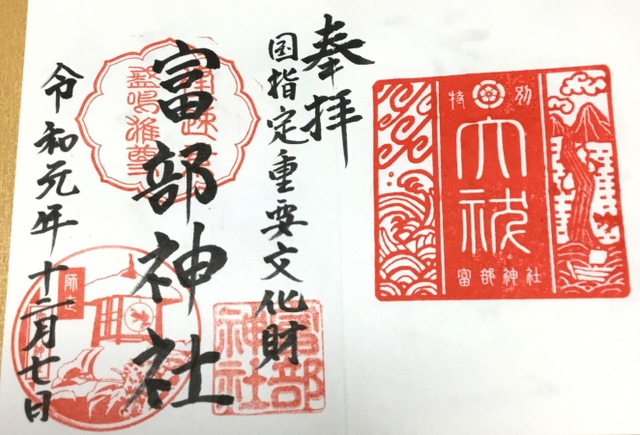 特別
大祓
富部神社
奉拝
国指定重要文化財
富部神社
富部神社
令和元年十二月七日